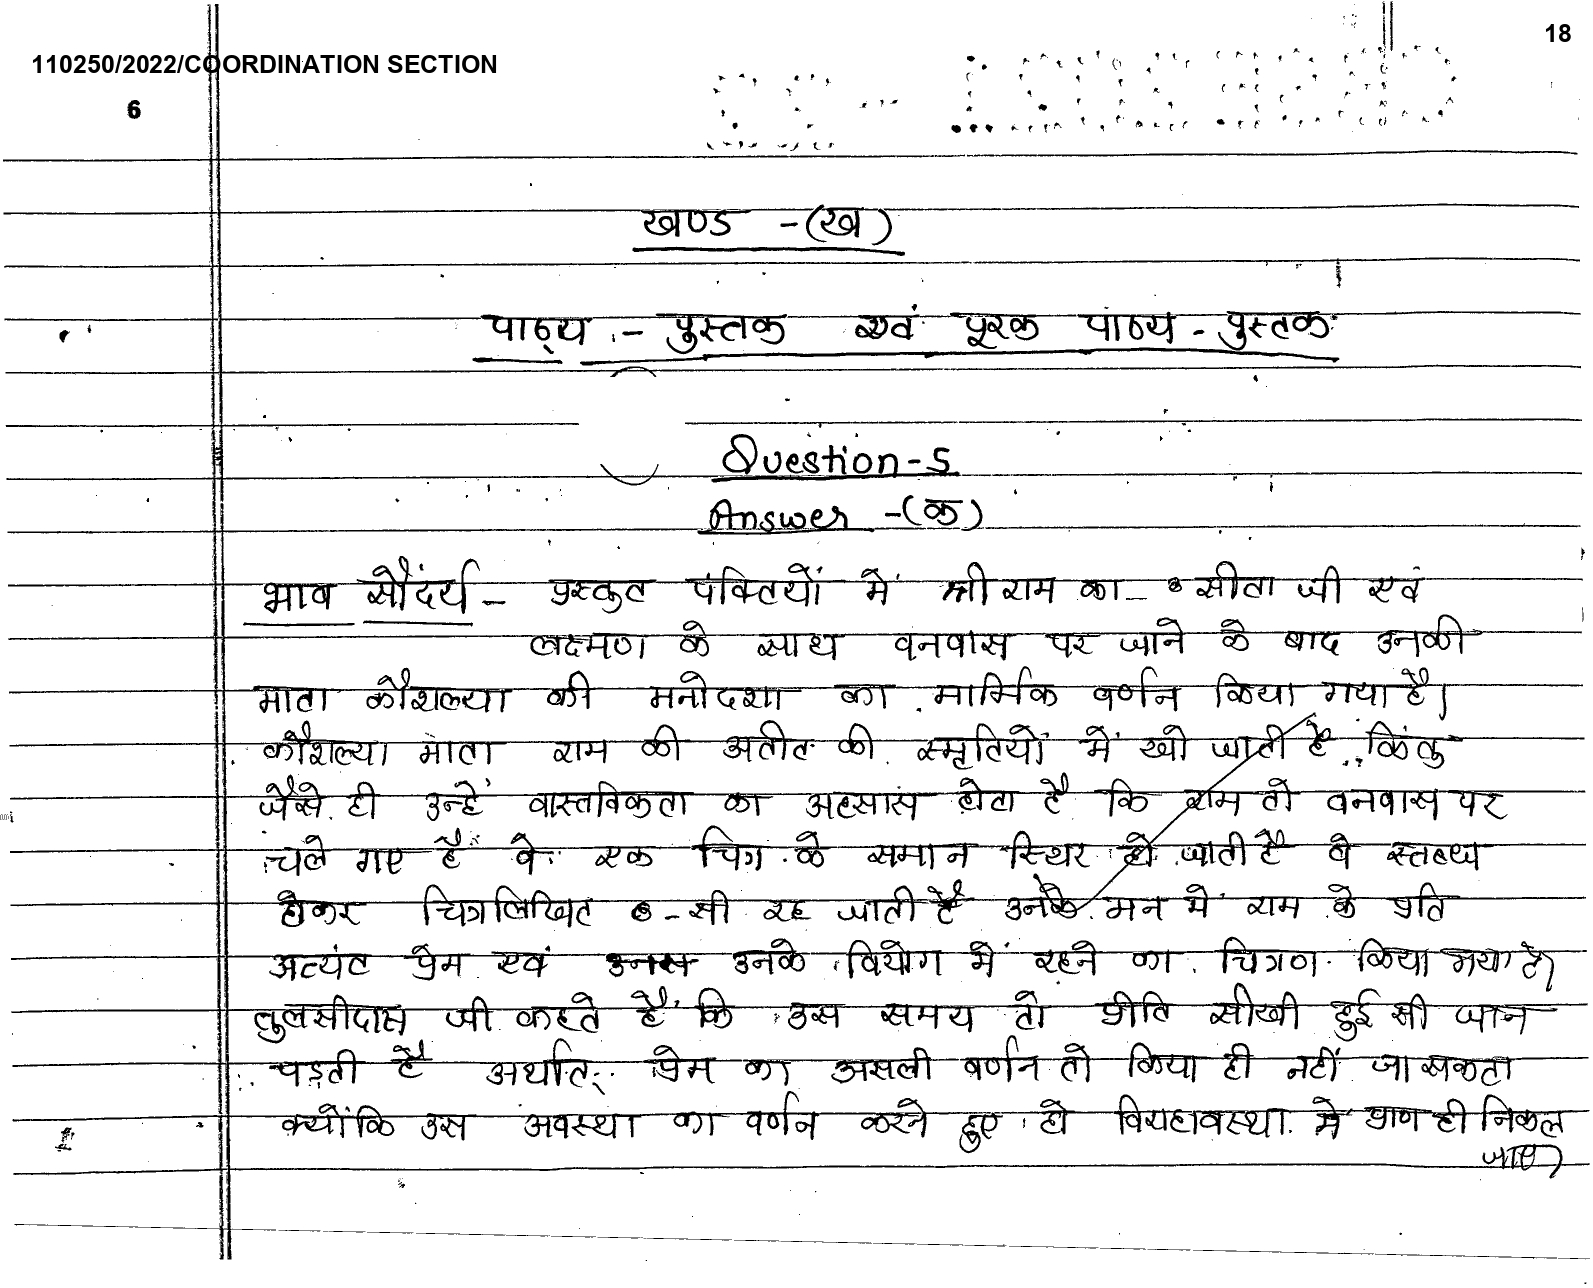 18
110250/2022/COORDINATION SECTION
6
खण्ड -(ख)
पाठ्य - पुस्तक एवं पूरक पाठ्य - पुस्तक
Question-5
Answer -(क)
भाव सौदंर्य - प्रस्तुत पंक्तियों में श्री राम का - सीता जी एवं
लक्ष्मण के साथ वनवास पर जाने के बाद उनकी
माता कौशल्या की मनोदशा का मार्मिक वर्णन किया गया है।
कौशल्या माता राम की अतीत की स्मृतियों में खो जाती है किंतु
जैसे ही उन्हें वास्तविकता का अहसास होता है कि राम तो वनवास पर
चले गए हैं वे एक चित्र के समान स्थिर हो जाती है वे स्तब्ध
होकर चित्रलिखित -सी रह जाती है उनके मन में राम के प्रति
अत्यंत प्रेम एवं उनके वियोग में रहने का चित्रण किया गया है।
तुलसीदास जी कहते हैं कि उस समय तो प्रीति सीखी हुई सी जान
पड़ती है अर्थात् प्रेम का असली वर्णन तो किया ही नहीं जा सकता
क्योंकि उस अवस्था का वर्णन करने हुए तो विरहावस्था में प्राण ही निकल
जाए।